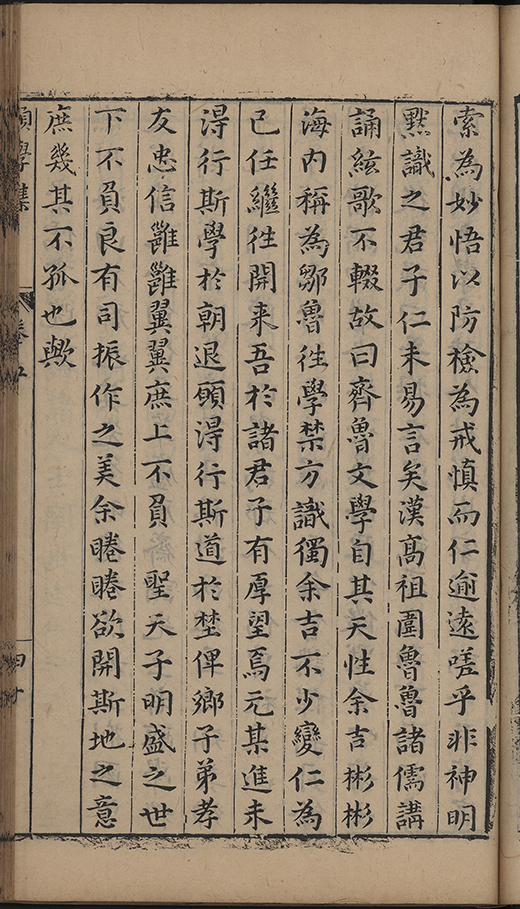 索為妙悟以防檢為戒慎而仁逾遠嗟乎非神明
默識之君子仁未易言矣漢高祖圍魯魯諸儒講
誦絃歌不輟故曰齊魯文學自其天性余吉彬彬
海內稱為鄒魯徃學禁方識獨余吉不少變仁為
己任繼徃開来吾於諸君子有厚望焉元某進未
淂行斯學於朝退願淂行斯道於埜俾鄉子弟孝
友忠信雝雝翼翼庶上不負 聖天子明盛之世
下不負良有司振作之美余睠睠欲開斯地之意
庶幾其不孤也歟
願學集
卷五
四十